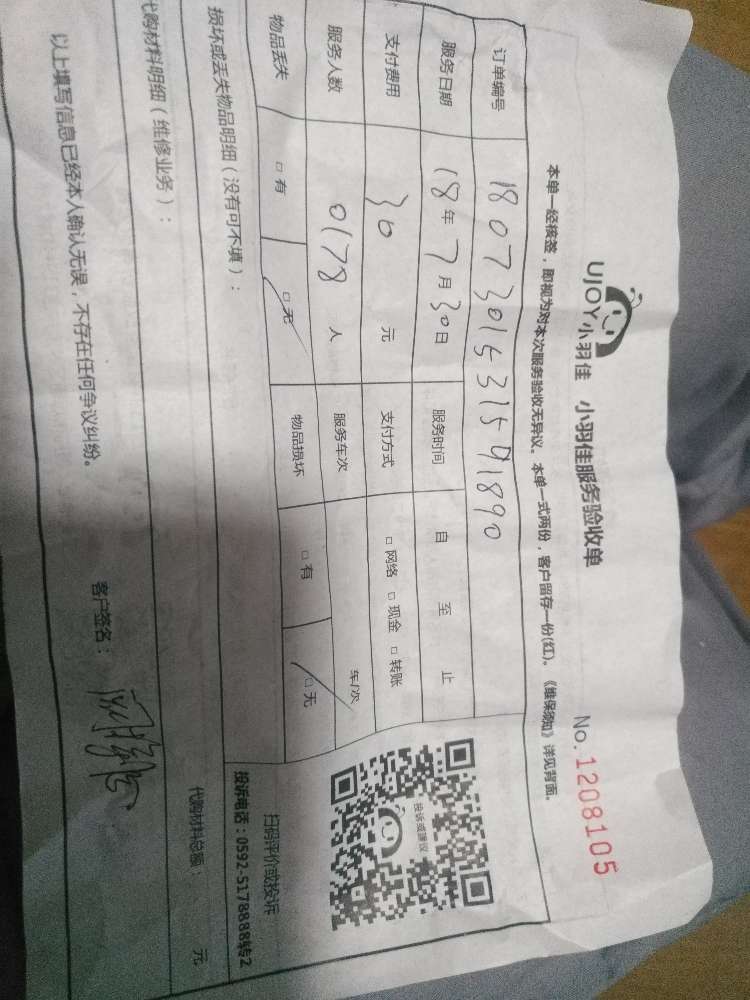 UJOY小羽佳 小羽佳服务验收单 No.1208105
本单一经核签，即视为对本次服务验收无异议。本单一式两份，客户留存一份(红)。《维保须知》详见背面。
订单编号 18073015315491890
服务日期 18年7月30日 服务时间 自 至 止
支付费用 30 元 支付方式 □网络 □现金 □转账
服务人数 0178 人 服务车次 车/次
物品丢失 □有 □无 物品损坏 □有 □无
投诉或建议
扫码评价或投诉
投诉电话：0592-5178888转2
损坏或丢失物品明细（没有可不填）：
代购材料明细（维修业务）： 代购材料总额 元
以上填写信息已经本人确认无误，不存在任何争议纠纷。 客户签名：